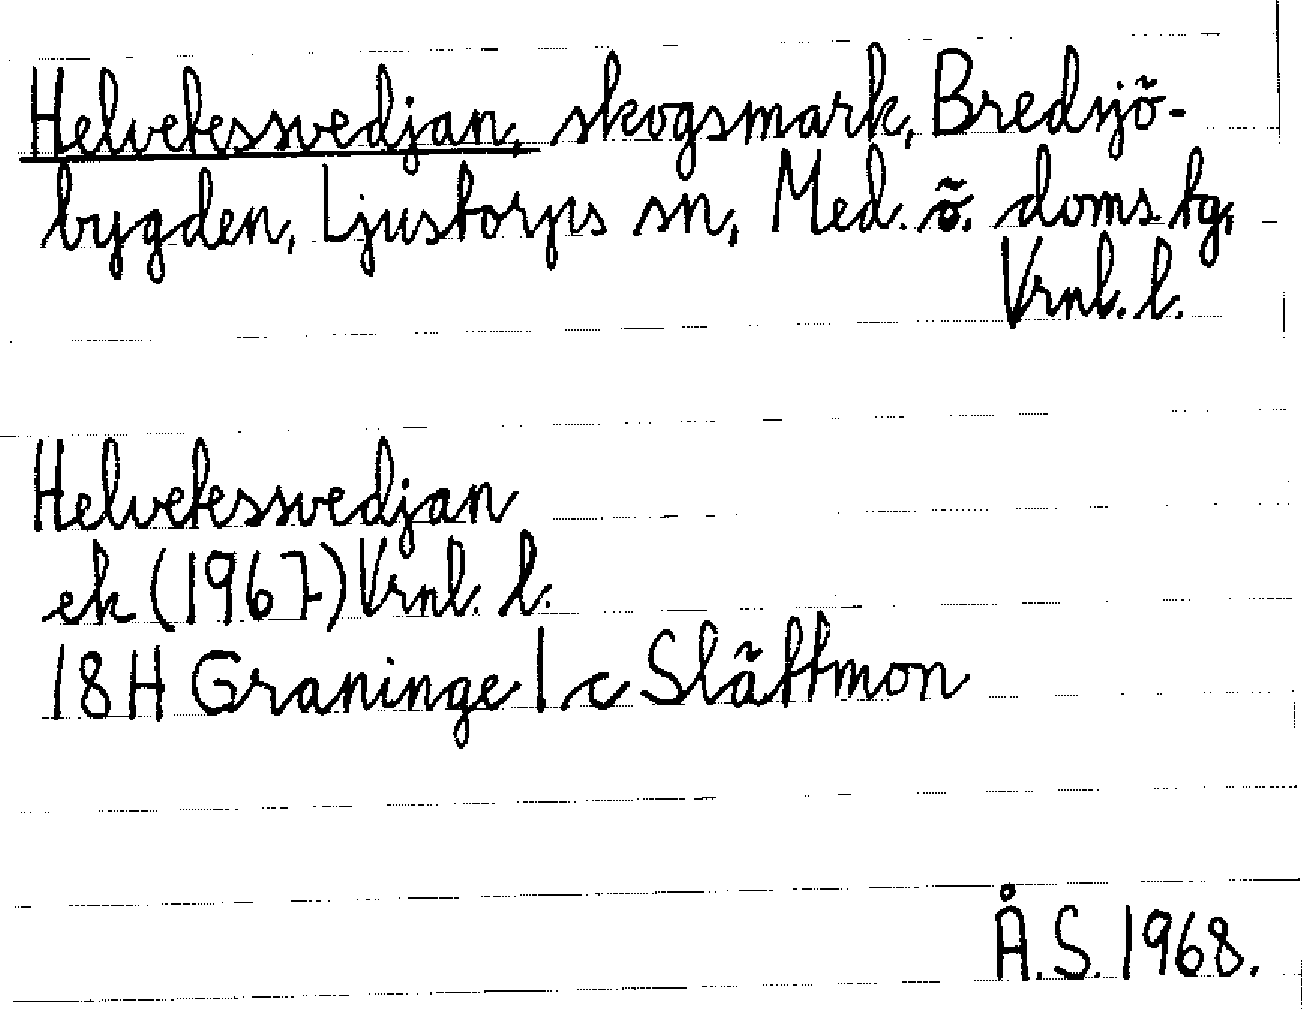 Helvetessvedjan, skogsmark, Bredsjö-
bygden, Ljustorps sn, Med. ö. doms.tg,
Vrnl. l.
Helvetessvedjan
ek (1967) Vrnl. l.
18H Graninge 1 c Slättmon
Å.S. 1968.